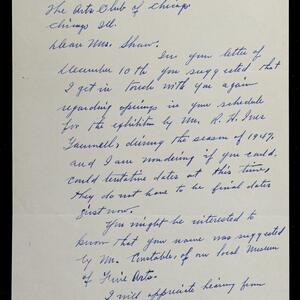 The Arts Club of Chicago
Chicago Ill.
Dear Mrs. Shaw.
In your letter of
December 10th you suggested that
I get in touch with you again
regarding openings in your schedule
for the exhibition by Mr. R. H. Ives
Gammell, during the season of 1947,
and I am wondering if you could
could tentative dates at this time,
they do not have to be final dates
just now.
You might be interested to
know that your name was suggested
by Mr. Constable, of our local Museum
of Fine Arts.
I will appreciate hearing from